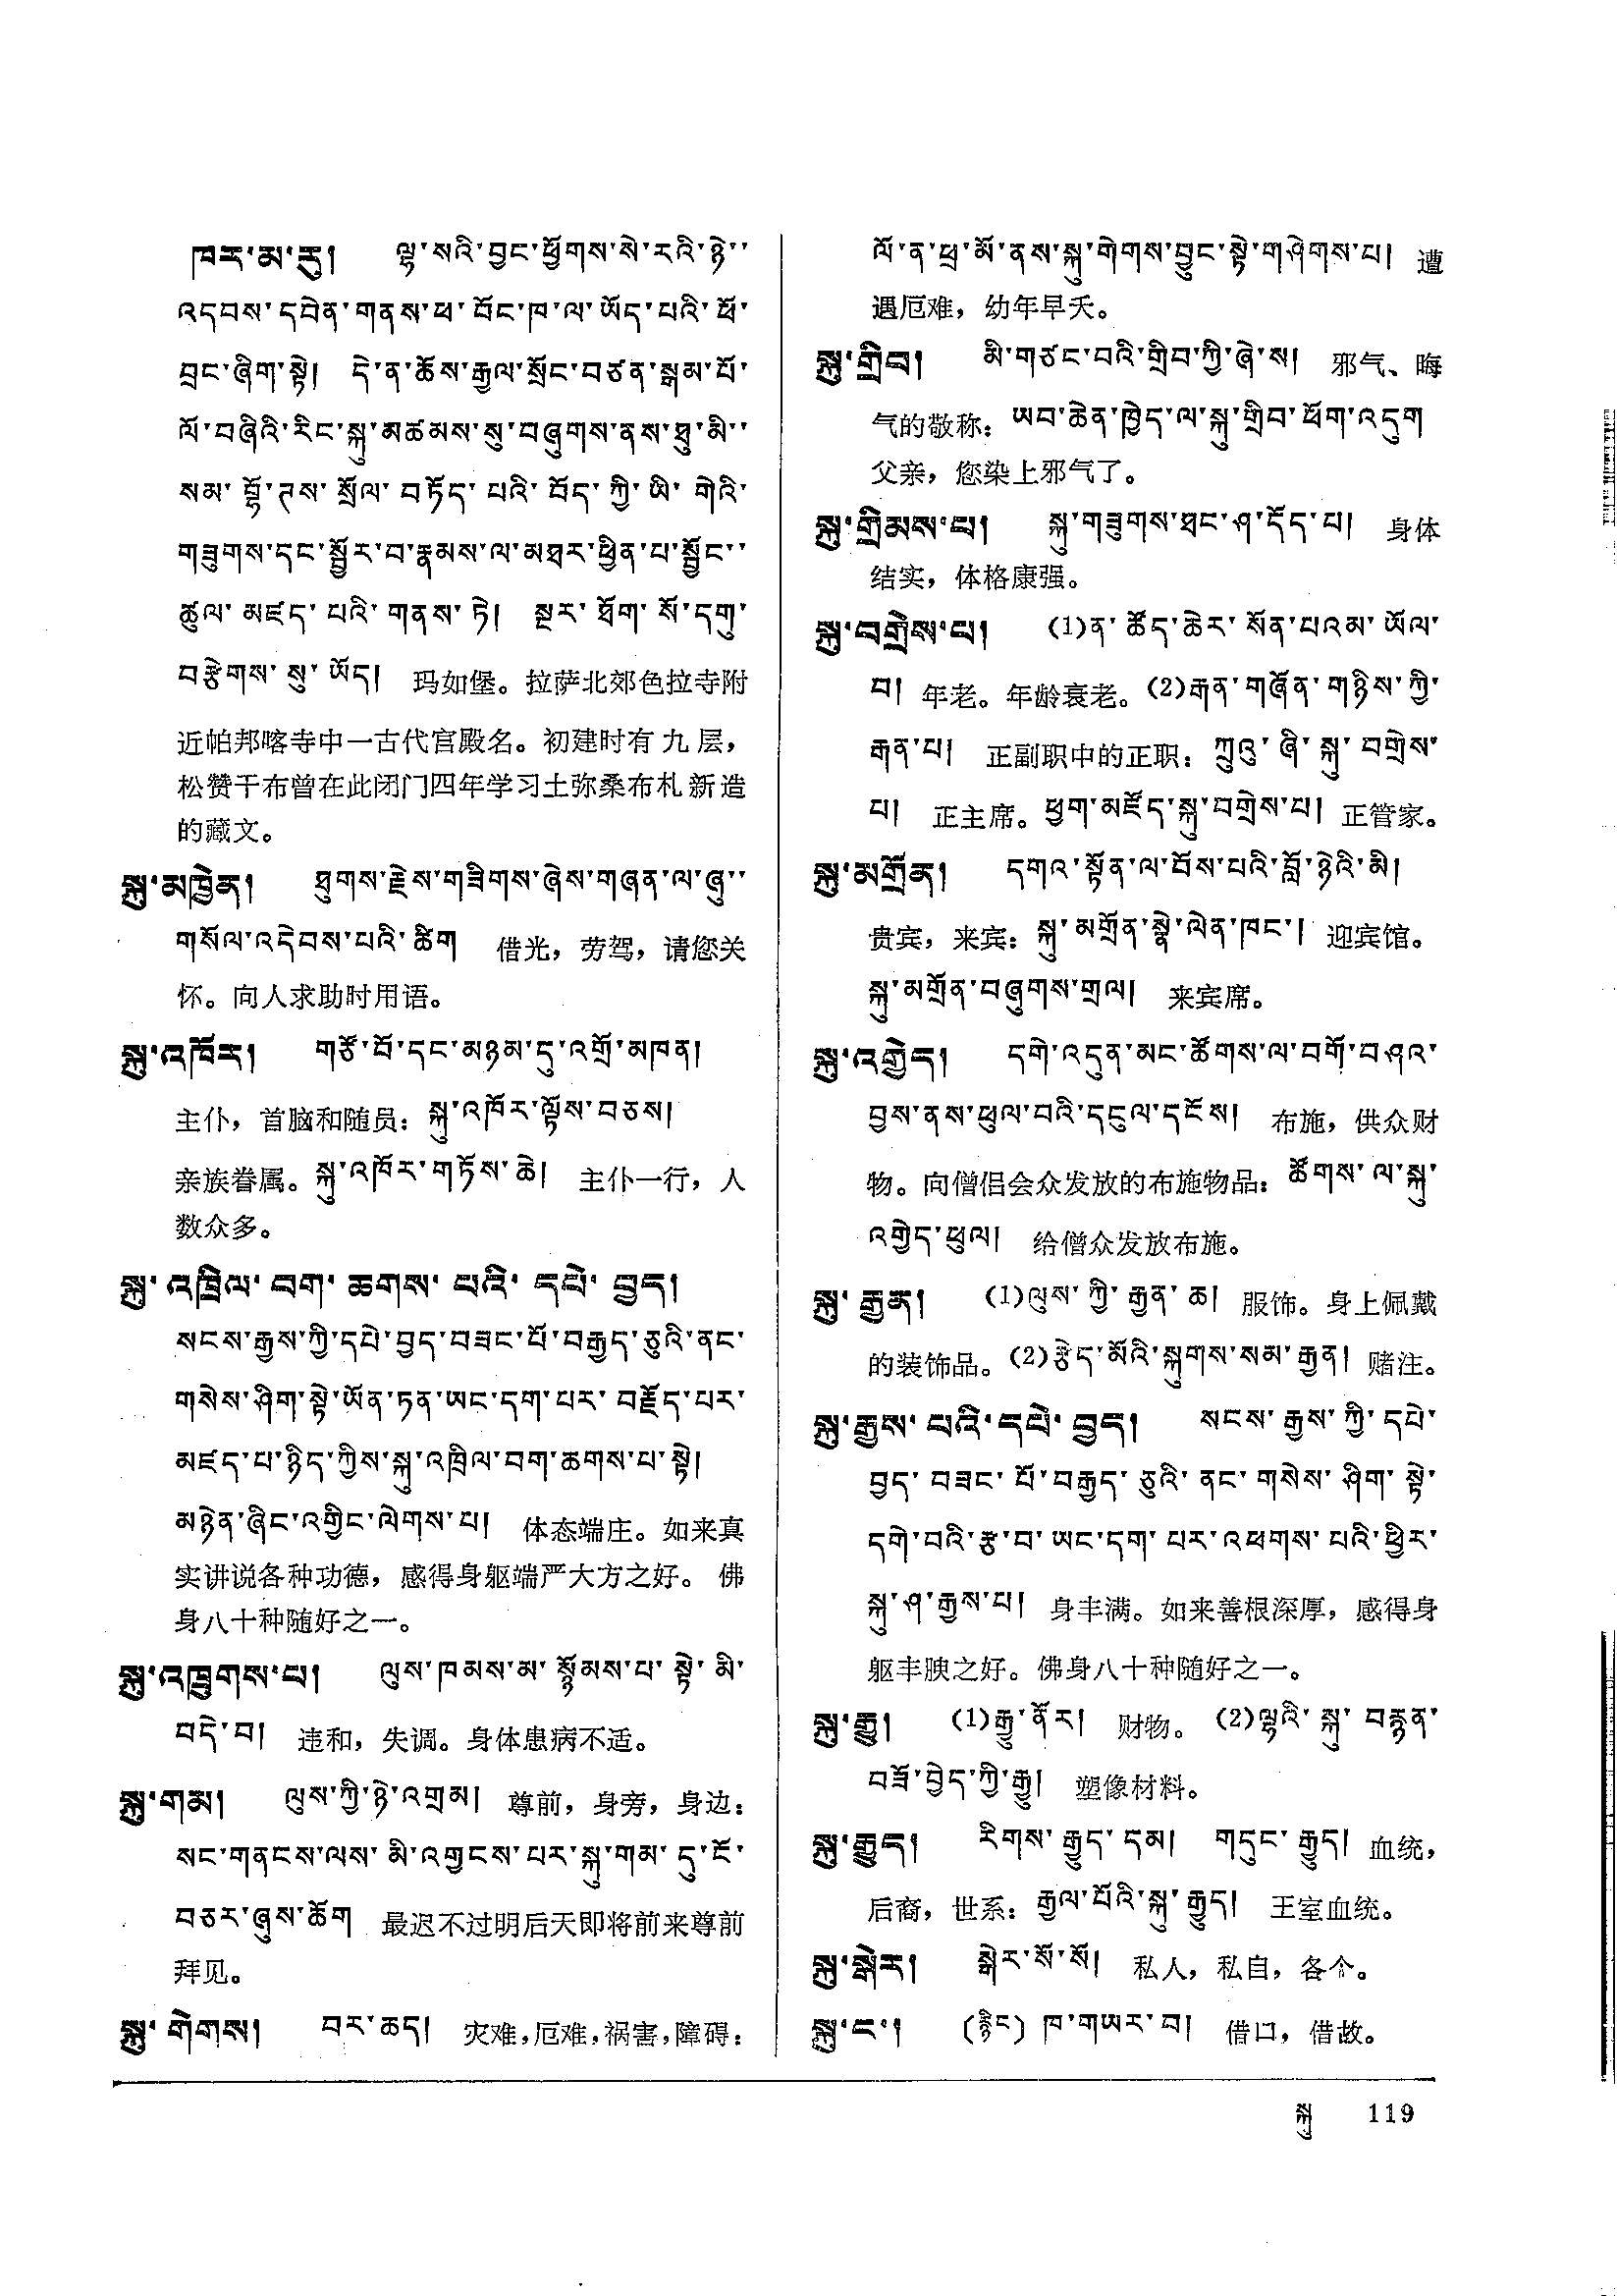 ཁར་མ་རུ།  ལྷ་སའི་བྱང་ཕྱོགས་སེ་རའི་ཉེ་་
འདབས་དབེན་གནས་ཕ་བོང་ཁ་ལ་ཡོད་པའི་ཕོ་
བྲང་ཞིག་སྟེ།  དེ་ན་ཆོས་རྒྱལ་སྲོང་བཙན་སྒམ་པོ་
ལོ་བཞིའི་རིང་སྐུ་མཚམས་སུ་བཞུགས་ནས་ཐུ་མི་་
སམ་བྷོ་ཊས་སྲོལ་བཏོད་པའི་བོད་ཀྱི་ཡི་གེའི་
གཟུགས་དང་སྦྱོར་བ་རྣམས་ལ་མཐར་ཕྱིན་པ་སྦྱོང་་
ཚུལ་མཛད་པའི་གནས་ཏེ།  སྔར་ཐོག་སོ་དགུ་
བརྩེགས་སུ་ཡོད།  玛如堡。拉萨北郊色拉寺附
近帕邦喀寺中一古代宫殿名。初建时有九层，
松赞干布曾在此闭门四年学习土弥桑布札新造
的藏文。
སྐུ་མཁྱེན།  ཐུགས་རྗེས་གཟིགས་ཞེས་གཞན་ལ་ཞུ་་
གསོལ་འདེབས་པའི་ཚིག  借光，劳驾，请您关
怀。向人求助时用语。
སྐུ་འཁོར།  གཙོ་བོ་དང་མཉམ་དུ་འགྲོ་མཁན།
主仆，首脑和随员：སྐུ་འཁོར་ལྟོས་བཅས།
亲族眷属。སྐུ་འཁོར་གཏོས་ཆེ།  主仆一行，人
数众多。
སྐུ་འཁྲིལ་བག་ཆགས་པའི་དཔེ་བྱད།
སངས་རྒྱས་ཀྱི་དཔེ་བྱད་བཟང་པོ་བརྒྱད་ཅུའི་ནང་
གསེས་ཤིག་སྟེ་ཡོན་ཏན་ཡང་དག་པར་བརྗོད་པར་
མཛད་པ་ཉིད་ཀྱིས་སྐུ་འཁྲིལ་བག་ཆགས་པ་སྟེ།
མཉེན་ཞིང་འགྱིང་ལེགས་པ།  体态端庄。如来真
实讲说各种功德，感得身躯端严大方之好。佛
身八十种随好之一。
སྐུ་འཁྲུགས་པ།  ལུས་ཁམས་མ་སྙོམས་པ་སྟེ་མི་
བདེ་བ།  违和，失调。身体患病不适。
སྐུ་གམ།  ལུས་ཀྱི་ཉེ་འགྲམ།  尊前，身旁，身边：
སང་གནངས་ལས་མི་འགྱངས་པར་སྐུ་གམ་དུ་ངོ་
བཅར་ཞུས་ཆོག  最迟不过明后天即将前来尊前
拜见。
སྐུ་གེགས།  བར་ཆད།  灾难，厄难，祸害，障碍：
ལོ་ན་ཕྲ་མོ་ནས་སྐུ་གེགས་བྱུང་སྟེ་གཤེགས་པ།  遭
遇厄难，幼年早夭。
སྐུ་གྲིབ།  མི་གཙང་བའི་གྲིབ་ཀྱི་ཞེ་ས།  邪气、晦
气的敬称：ཡབ་ཆེན་ཁྱེད་ལ་སྐུ་གྲིབ་ཕོག་འདུག
父亲，您染上邪气了。
སྐུ་གྲིམས་པ།  སྐུ་གཟུགས་ཐང་ཤ་དོད་པ།  身体
结实，体格康强。
སྐུ་བགྲེས་པ།  (1)ན་ཚོད་ཆེར་སོན་པའམ་ཡོལ་
བ།  年老。年龄衰老。(2)རྒན་གཞོན་གཉིས་ཀྱི་
རྒན་པ།  正副职中的正职：ཀྲུའུ་ཞི་སྐུ་བགྲེས་
པ།  正主席。ཕྱག་མཛོད་སྐུ་བགྲེས་པ།  正管家。
སྐུ་མགྲོན།  དགའ་སྟོན་ལ་བོས་པའི་བློ་ཉེའི་མི།
贵宾，来宾：སྐུ་མགྲོན་སྣེ་ལེན་ཁང་།  迎宾馆。
སྐུ་མགྲོན་བཞུགས་གྲལ།  来宾席。
སྐུ་འགྱེད།  དགེ་འདུན་མང་ཚོགས་ལ་བགོ་བཤའ་
བྱས་ནས་ཕུལ་བའི་དངུལ་དངོས།  布施，供众财
物。向僧侣会众发放的布施物品：ཚོགས་ལ་སྐུ་
འགྱེད་ཕུལ།  给僧众发放布施。
སྐུ་རྒྱན།  (1)ལུས་ཀྱི་རྒྱན་ཆ།  服饰。身上佩戴
的装饰品。(2)རྩེད་མོའི་སྐུགས་སམ་རྒྱན།  赌注。
སྐུ་རྒྱས་པའི་དཔེ་བྱད།  སངས་རྒྱས་ཀྱི་དཔེ་
བྱད་བཟང་པོ་བརྒྱད་ཅུའི་ནང་གསེས་ཤིག་སྟེ་
དགེ་བའི་རྩ་བ་ཡང་དག་པར་འཕགས་པའི་ཕྱིར་
སྐུ་ཤ་རྒྱས་པ།  身丰满。如来善根深厚，感得身
躯丰腴之好。佛身八十种随好之一。
སྐུ་རྒྱུ།  (1)རྒྱུ་ནོར།  财物。(2)ལྷའི་སྐུ་བརྙན་
བཟོ་བྱེད་ཀྱི་རྒྱུ།  塑像材料。
སྐུ་རྒྱུད།  རིགས་རྒྱུད་དམ།  གདུང་རྒྱུད།  血统，
后裔，世系：རྒྱལ་པོའི་སྐུ་རྒྱུད།  王室血统。
སྐུ་སྒེར།  སྒེར་སོ་སོ།  私人，私自，各个。
སྐུ་ང་།  (རྙིང) ཁ་གཡར་བ།  借口，借故。
སྐུ  119